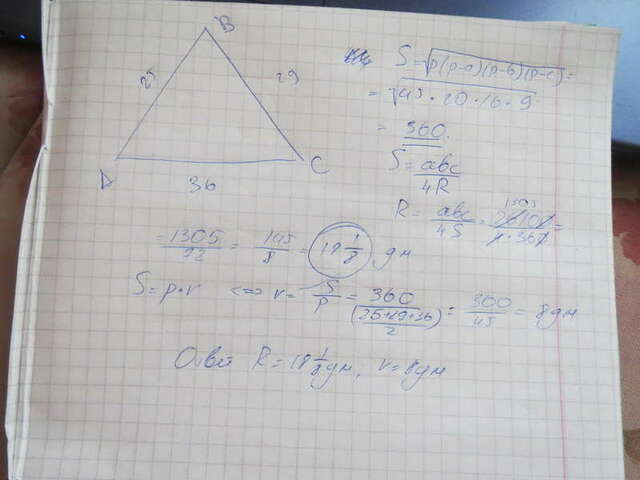 B
25 29
A C
36
S = √p(p-a)(p-b)(p-c) =
= √45·20·16·9
= 360.
S = abc/4R
R = abc/4S =
= 1305/72 = 145/8 = 18 1/8 дм
S = p·r <=> r = S/p = 360/((25+29+36)/2) = 360/45 = 8 дм
Ответ R = 18 1/8 дм, r = 8 дм